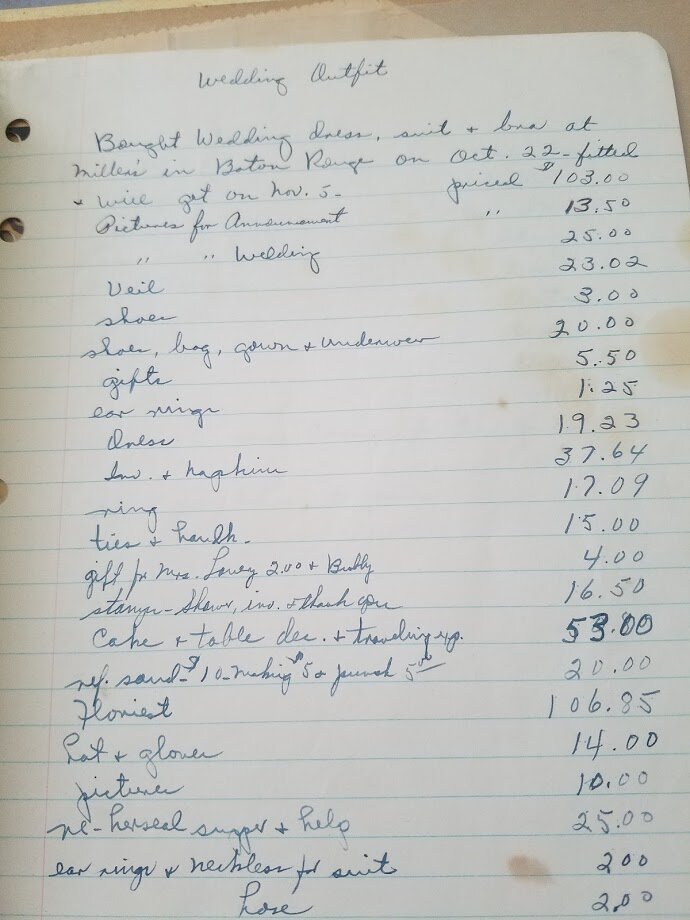 Wedding Outfit
Bought Wedding dress, suit + bra at
Miller's in Baton Rouge on Oct. 22 - fitted
+ will get on Nov. 5 - priced $103.00
Pictures for Announcement " 13.50
" " Wedding 25.00
Veil 23.02
shoes 3.00
shoes, bag, gown + underwear 20.00
gifts 5.50
ear rings 1.25
Dress 19.23
Inv. + napkins 37.64
ring 17.09
ties + handk. 15.00
gift for Mrs. 2.00 + Bubby 4.00
stamps - Shower, inv. + thank you 16.50
Cake + table dec. + traveling exp. 53.00
ref. sand - $10 - making $5 + punch 5.00 20.00
Floriest 106.85
hat + gloves 14.00
pictures 10.00
re-herseal supper + help 25.00
ear rings + neckless for suit 2.00
hose 2.00